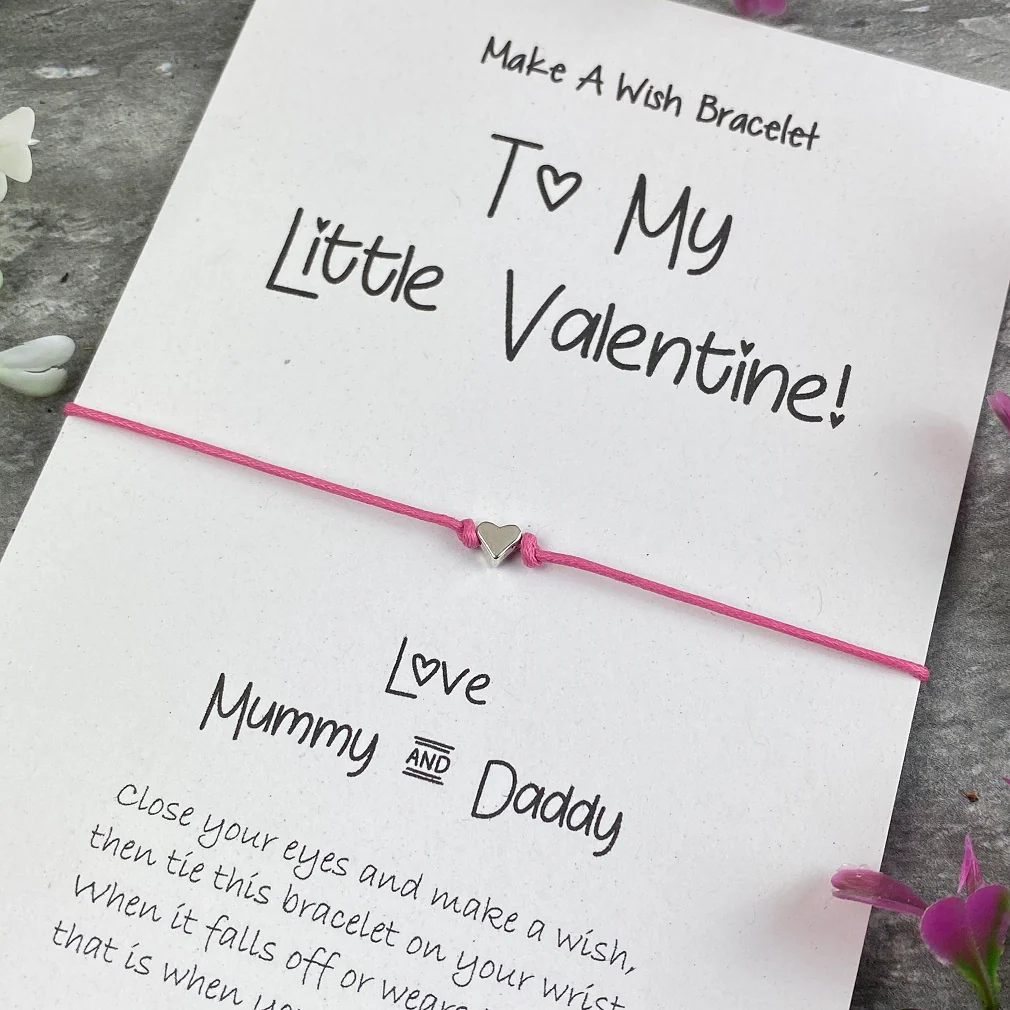 Make A Wish Bracelet
To My
Little Valentine!
Love
Mummy AND Daddy
Close your eyes and make a wish,
then tie this bracelet on your wrist
When it falls off or wears
that is when